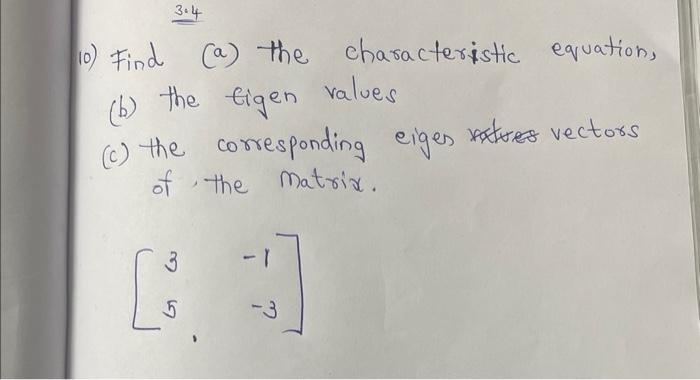 3.4
10) Find (a) the characteristic equation,
(b) the Eigen values
(c) the corresponding eigen vectors
of the matrix.
3 -1
5 -3